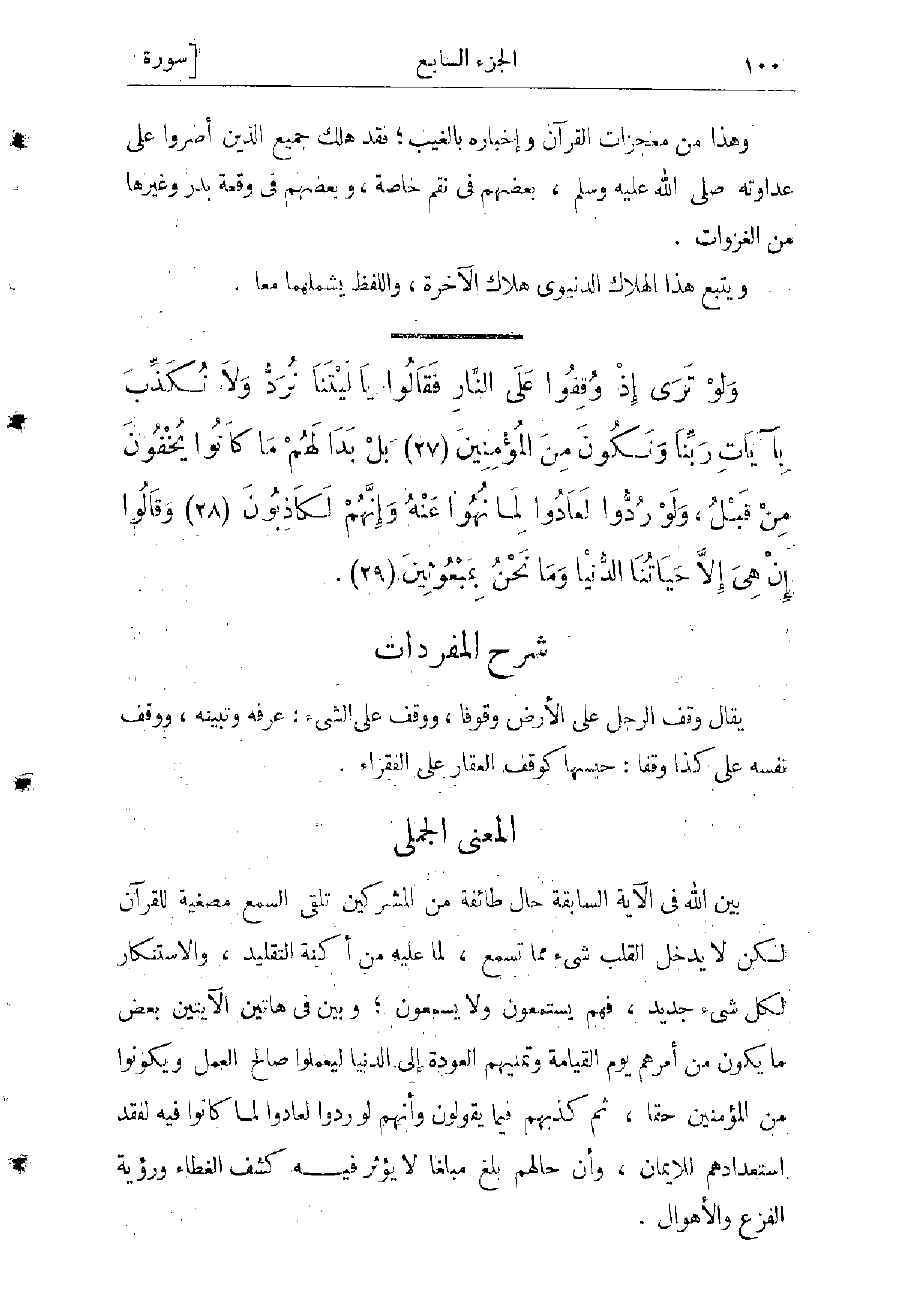 ١٠٠ الجزء السابع [سورة
وهذا من معجزات القرآن وإخباره بالغيب ؛ فقد هلك جميع الذين أصروا على
عداوته صلى الله عليه وسلم ، بعضهم فى نقم خاصة ، وبعضهم فى وقعة بدر وغيرها
من الغزوات .
ويتبع هذا الهلاك الدنيوى هلاك الآخرة ، واللفظ يشملهما معا .
وَلَوْ تَرَى إِذْ وُقِفُوا عَلَى النَّارِ فَقَالُوا يَا لَيْتَنَا نُرَدُّ وَلاَ نُكَذِّبَ
بِآيَاتِ رَبِّنَا وَنَكُونَ مِنَ الْمُؤْمِنِينَ (٢٧) بَلْ بَدَا لَهُمْ مَا كَانُوا يُخْفُونَ
مِنْ قَبْلُ ، وَلَوْ رُدُّوا لَعَادُوا لِمَا نُهُوا عَنْهُ وَإِنَّهُمْ لَكَاذِبُونَ (٢٨) وَقَالُوا
إِنْ هِىَ إِلاَّ حَيَاتُنَا الدُّنْيَا وَمَا نَحْنُ بِمَبْعُوثِينَ (٢٩) .
شرح المفردات
يقال وقف الرجل على الأرض وقوفا ، ووقف على الشىء : عرفه وتبينه ، ووقف
نفسه على كذا وقفا : حبسها كوقف العقار على الفقراء .
المعنى الجملى
بين الله فى الآية السابقة حال طائفة من المشركين تلقى السمع مصغية للقرآن
لكن لا يدخل القلب شىء مما تسمع ، لما عليه من أكنة التقليد ، والاستنكار
لكل شىء جديد ، فهم يستمعون ولا يسمعون ؛ وبين فى هاتين الآيتين بعض
ما يكون من أمرهم يوم القيامة وتمنيهم العودة إلى الدنيا ليعملوا صالح العمل ويكونوا
من المؤمنين حقا ، ثم كذبهم فيما يقولون وأنهم لو ردوا لعادوا لما كانوا فيه لفقد
استعدادهم للايمان ، وأن حالهم بلغ مبلغا لا يؤثر فيه كشف الغطاء ورؤية
الفزع والأهوال .